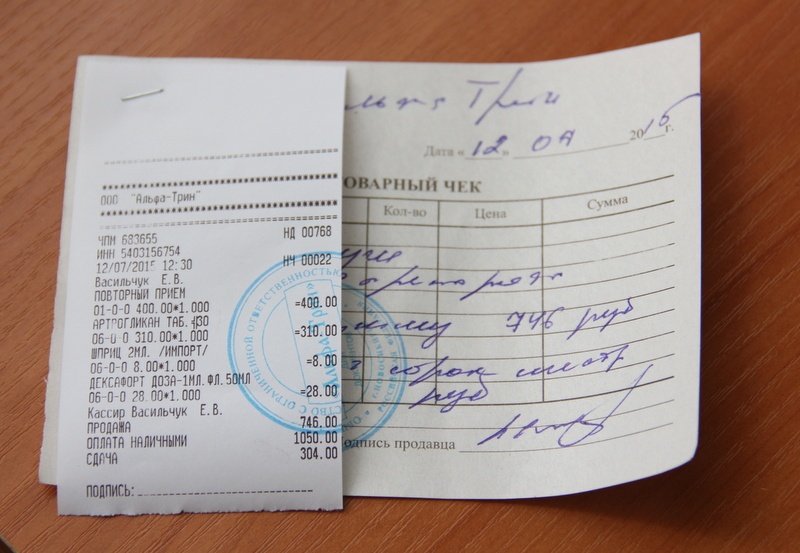 ООО "Альфа-Трин"
ЧПН 683655 НД 00768
ИНН 5403156754
12/07/2015 12:30 НЧ 00022
Васильчук Е.В.
ПОВТОРНЫЙ ПРИЕМ
01-0-0 400.00*1.000 =400.00
АРТРОГЛИКАН ТАБ. №30
06-0-0 310.00*1.000 =310.00
ШПРИЦ 2МЛ. /ИМПОРТ/
06-0-0 8.00*1.000 =8.00
ДЕКСАФОРТ ДОЗА-1МЛ.ФЛ.50МЛ
06-0-0 28.00*1.000 =28.00
Кассир Васильчук Е.В.
ПРОДАЖА 746.00
ОПЛАТА НАЛИЧНЫМИ 1050.00
СДАЧА 304.00
ПОДПИСЬ:
льфа Трин
Дата «12» 07 2015 г.
ОВАРНЫЙ ЧЕК
Кол-во Цена Сумма
746 руб
сорок шесть
руб
одпись продавца